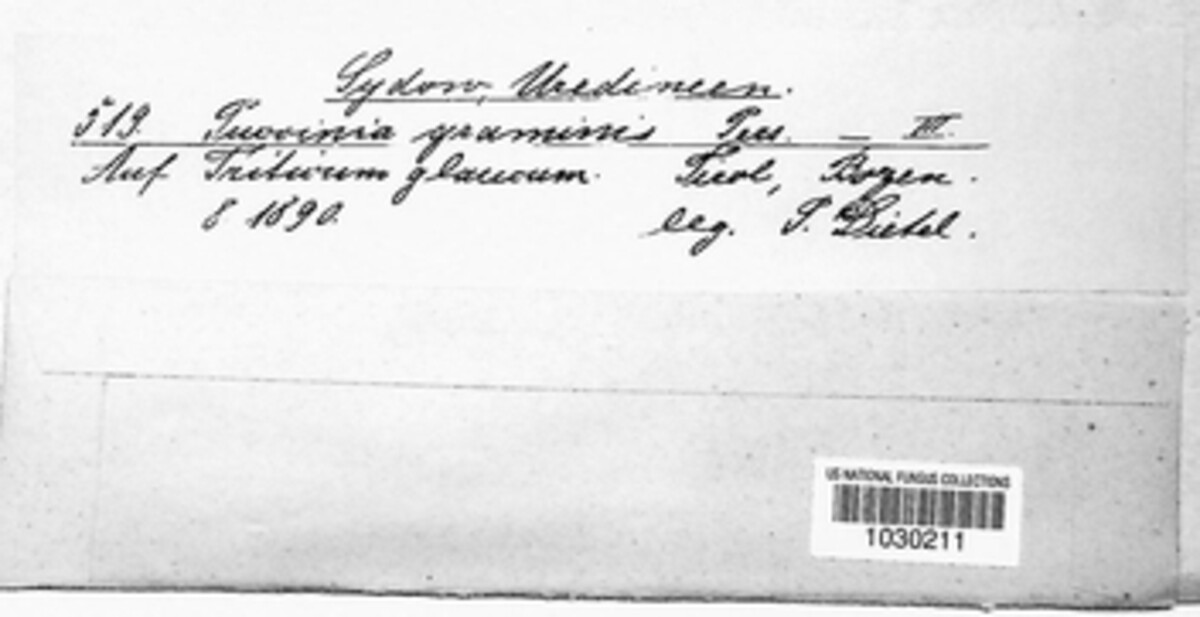 Sydow, Uredineen.
519. Puccinia graminis Pers. — III.
Auf Triticum glaucum. Tirol, Bozen.
8 1890. leg. P. Dietel.
US NATIONAL FUNGUS COLLECTIONS
1030211